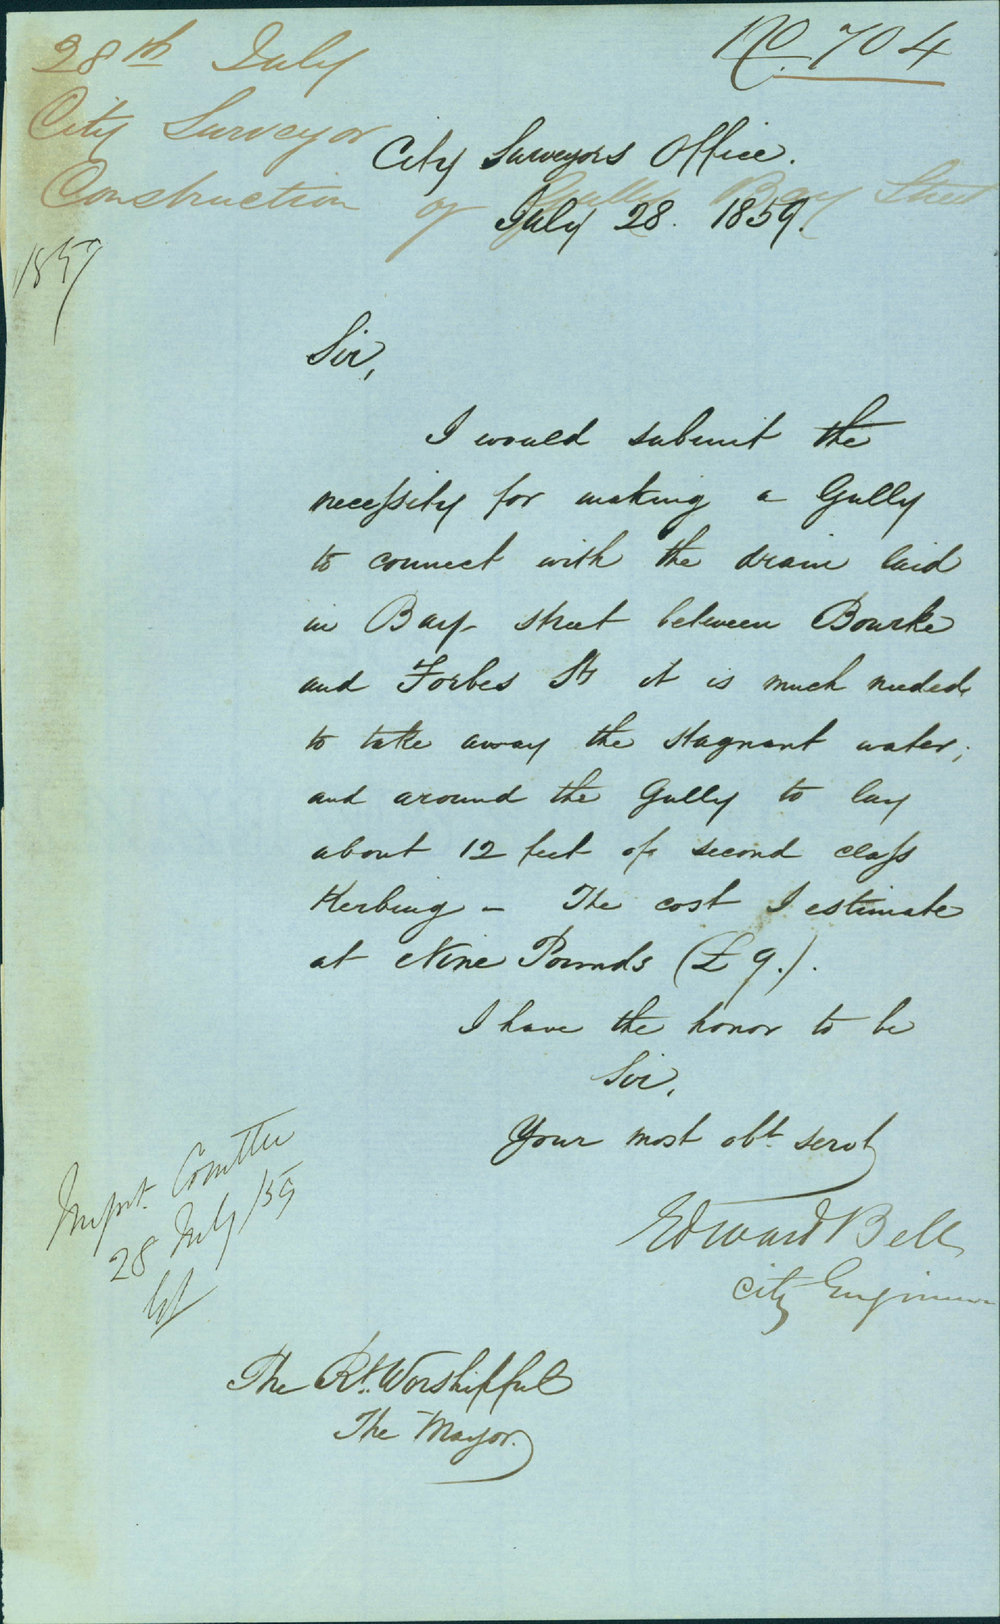 No. 704
28th July
City Surveyor
Construction of Gully Bay Street
1859
City Surveyors Office.
July 28. 1859.
Sir,
I would submit the
necessity for making a Gully
to connect with the drain laid
in Bay street between Bourke
and Forbes Sts it is much needed
to take away the stagnant water;
and around the Gully to lay
about 12 feet of second class
Kerbing – The cost I estimate
at Nine Pounds (£9.).
I have the honor to be
Sir,
Your most obt. servt
Edward Bell
City Engineer
Impt. Comttee
28 July /59
The Rt. Worshipful
The Mayor.